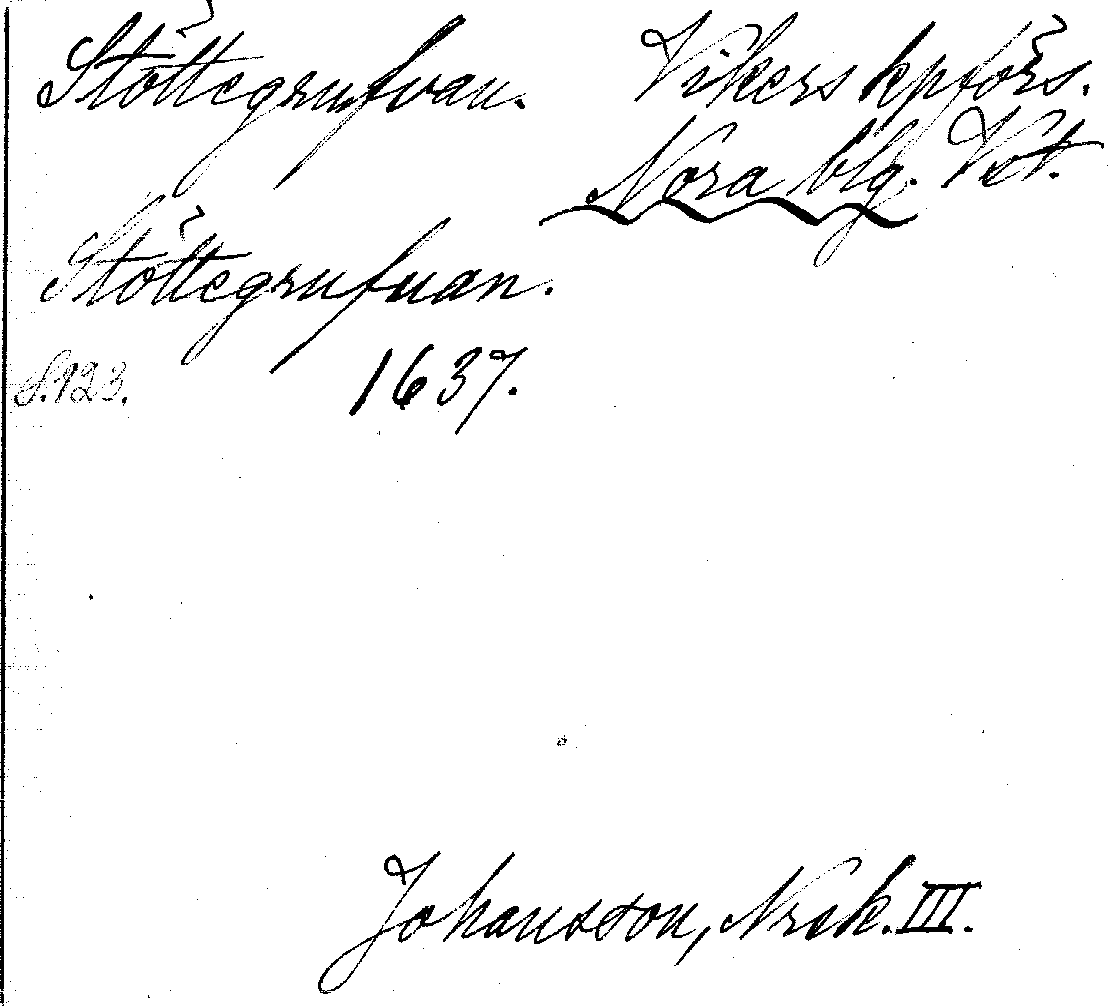 Stöttegrufvan. Vikers kpförs.
Nora blg. Vst.
Stöttegrufuan.
S.123. 1637.
Johansson, Nrck. III.